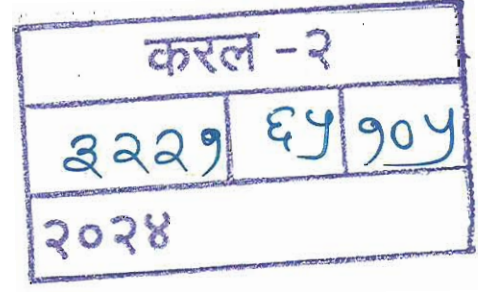 करल - २
३२२१ ६५ १०५
२०२४